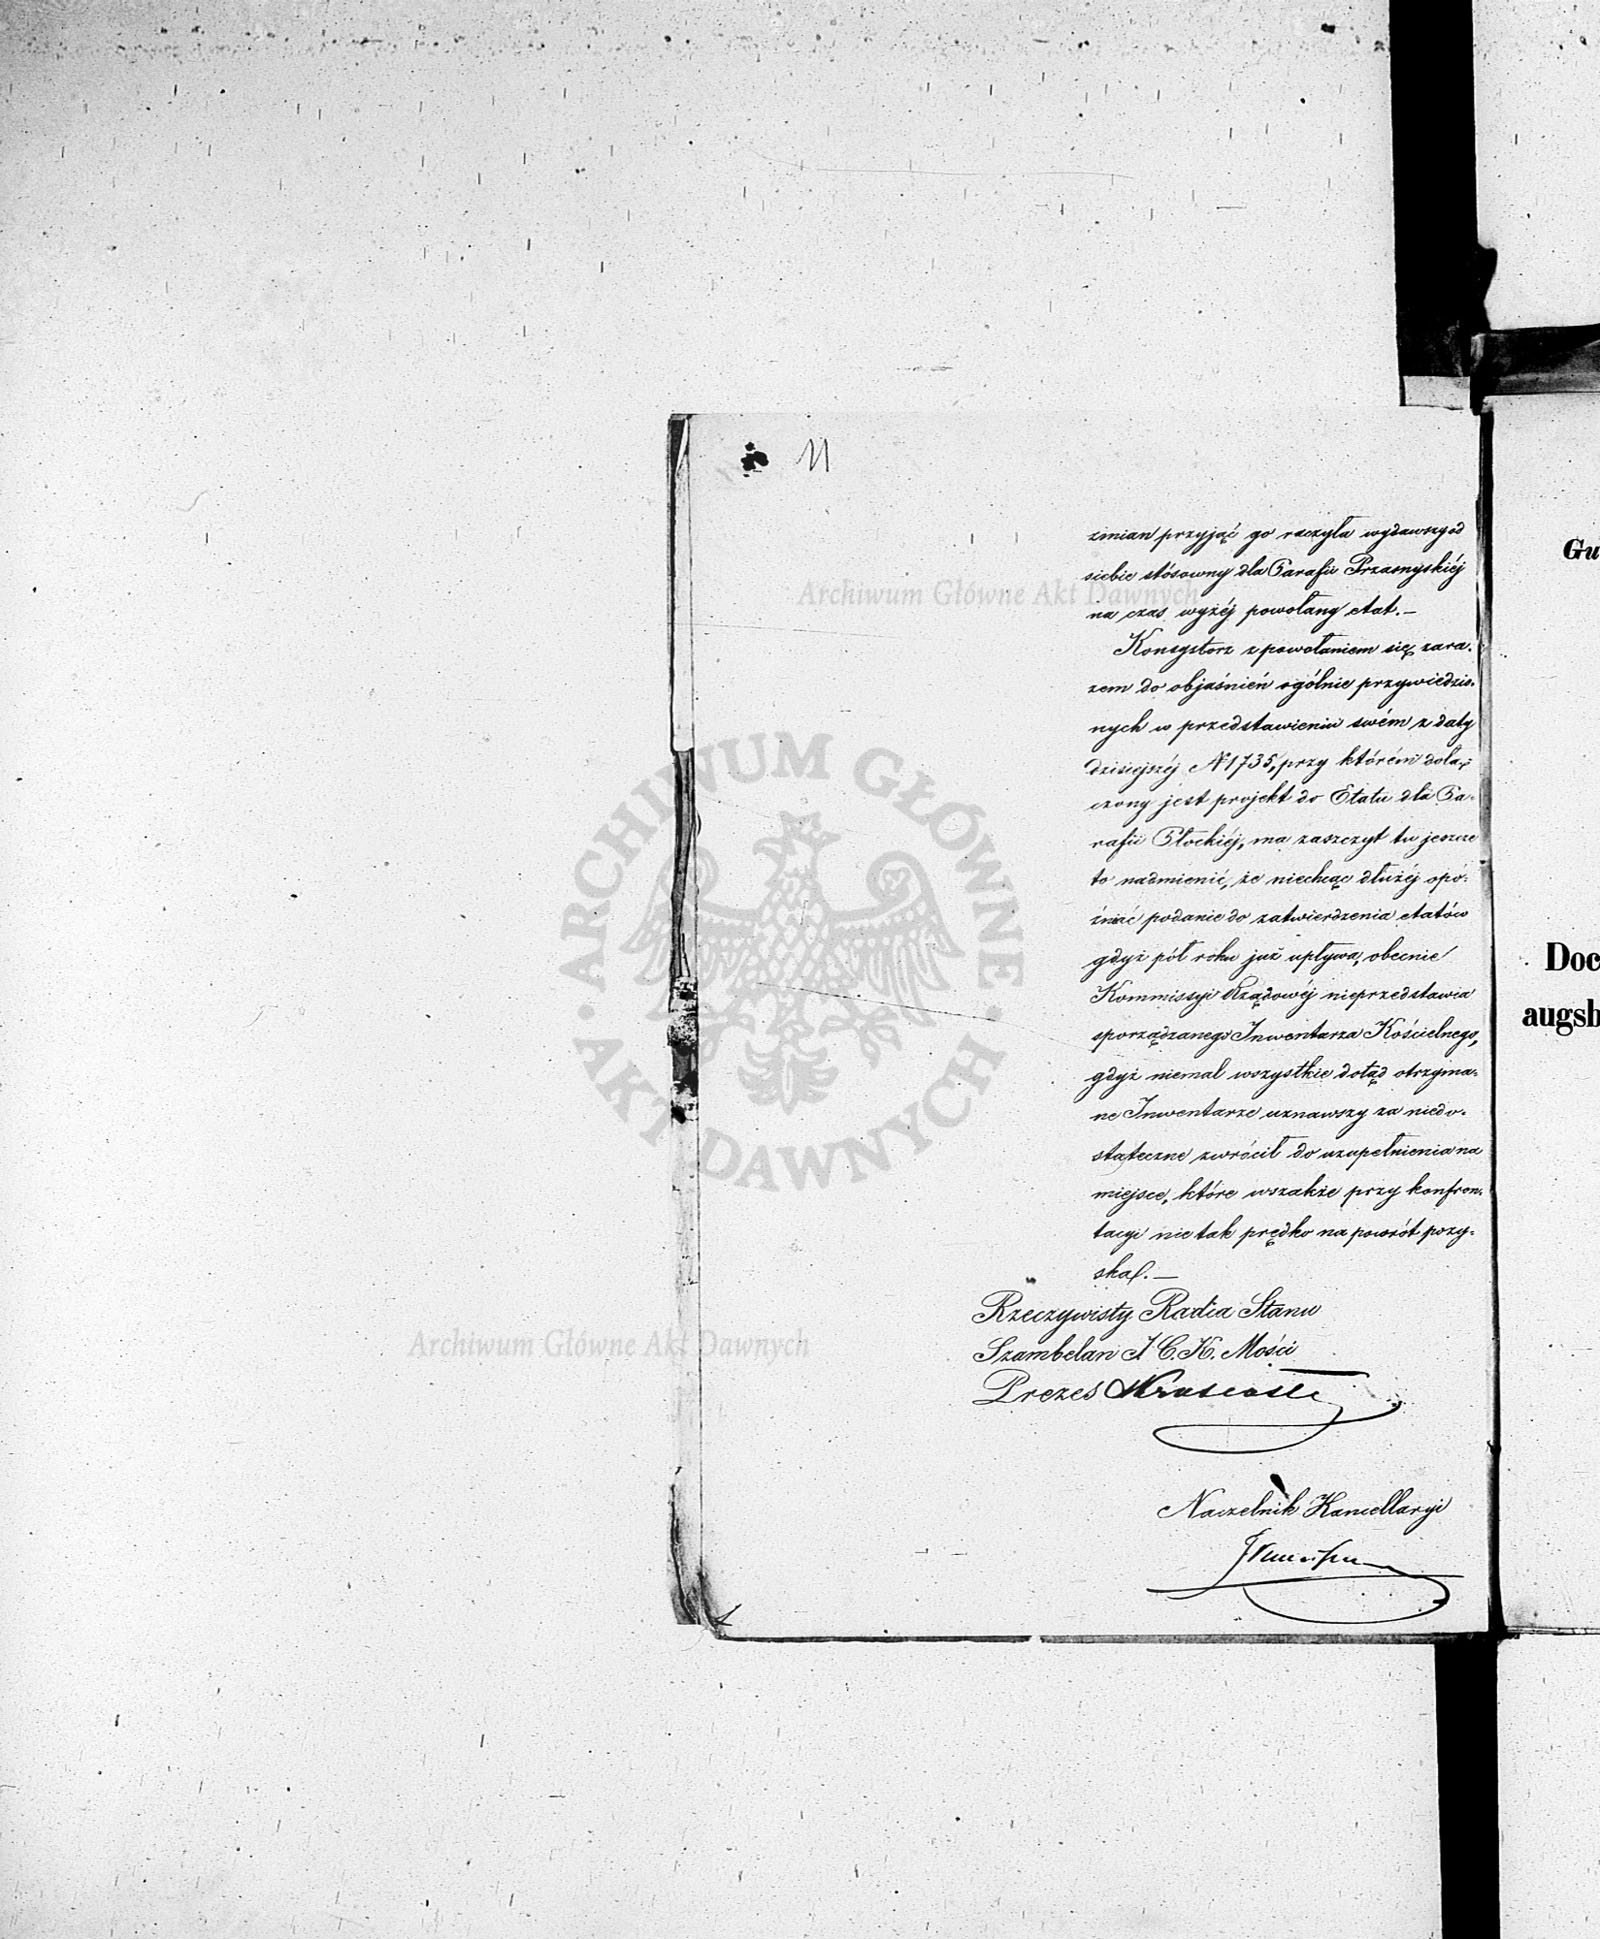 11
zmian przyjąć go raczyła wydawszy od
siebie stósowny dla Parafii Przasnyskiéj
na czas wyżéj powołany etat. —
Konsystorz z powołaniem się zara-
zem do objaśnień ogólnie przywiedzio-
nych w przedstawieniu swém z daty
dzisiejszéj N 1735, przy którém dołą-
czony jest projekt do Etatu dla Pa-
rafii Płockiéj, ma zaszczyt tu jeszcze
to nadmienić, że niechcąc dłużéj opó-
źniać podanie do zatwierdzenia etatów
gdyż pół roku już upływa, obecnie
Kommissyi Rządowéj nieprzedstawia
sporządzanego Inwentarza Kościelnego,
gdyż niemal wszystkie dotąd otrzyma-
ne Inwentarze uznawszy za niedo-
stateczne zwrócił do uzupełnienia na
miejsce, które wszakże przy konfron-
tacyi nie tak prędko na powrót pozy-
skał. —
Rzeczywisty Radca Stanu
Szambelan J. C. K. Mości
Prezes
Naczelnik Kancellaryi
Gu
Doc
augsb
Archiwum Główne Akt Dawnych
ARCHIWUM GŁÓWNE · AKT DAWNYCH ·
Archiwum Główne Akt Dawnych